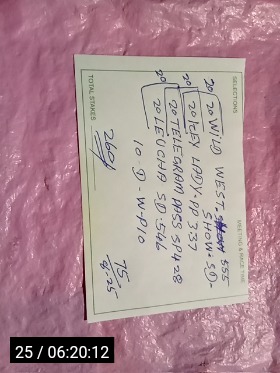 SELECTIONS
MEETING & RACE TIME
20 20 WILD WEST 555
SHOW: SD-
20 20 KEY LADY-PP 3.37
20 TELEGRAM MSS SP 4-28
20 20 LEUCHA SD-546
10 D - W-P10
TOTAL STAKES
260/
25 / 06:20:12